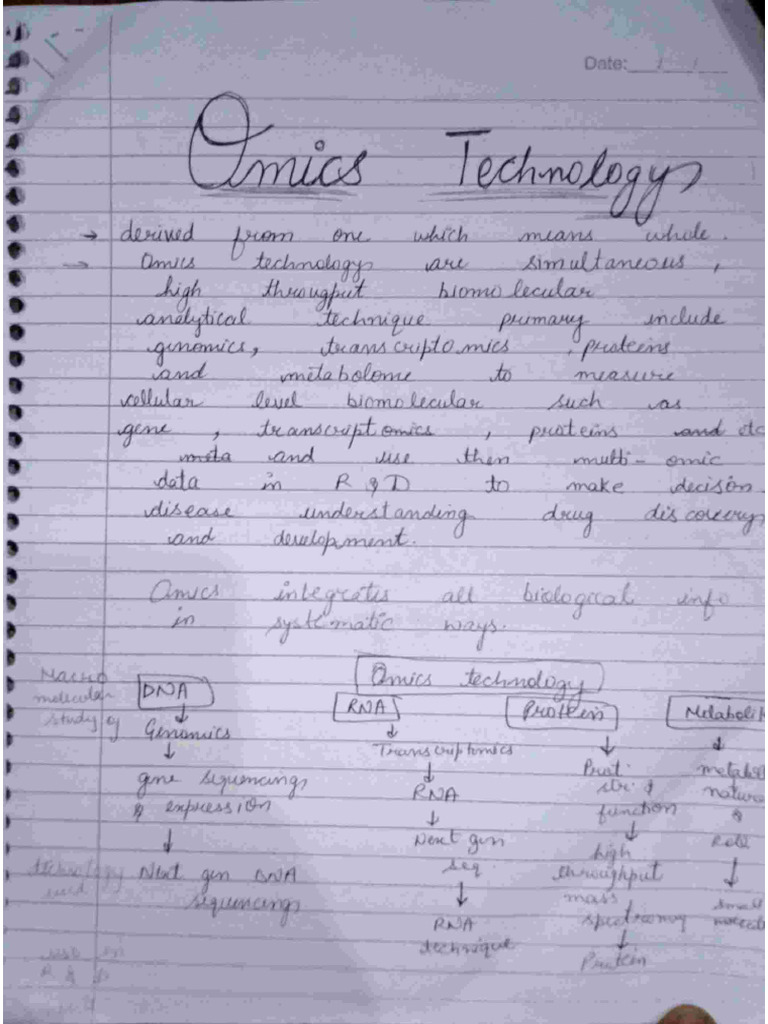 Date: / /
Omics Technology
→ derived from one which means whole.
→ Omics technology are simultaneous,
high througput biomolecular
analytical technique primary include
genomics, transcriptomics, proteins
and metabolome to measure
cellular level biomolecular such as
gene, transcriptomics, proteins and etc
meta and use then multi-omic
data in R & D to make decision
disease understanding drug discovery
and development.
Omics integrates all biological info
in systematic ways.
Omics technology
Macro
molecular
study of
DNA
↓
Genomics
↓
gene sequencing
& expression
↓
Next gen DNA
sequencing
RNA
↓
Transcriptomics
↓
RNA
↓
Next gen
seq
↓
RNA
technique
Protein
↓
Prot.
str. &
function
↓
high
throughput
mass
spectromy
↓
Protein
Metabolit
↓
metabol
nature
&
Role
↓
small
technology
used
use in
R & D